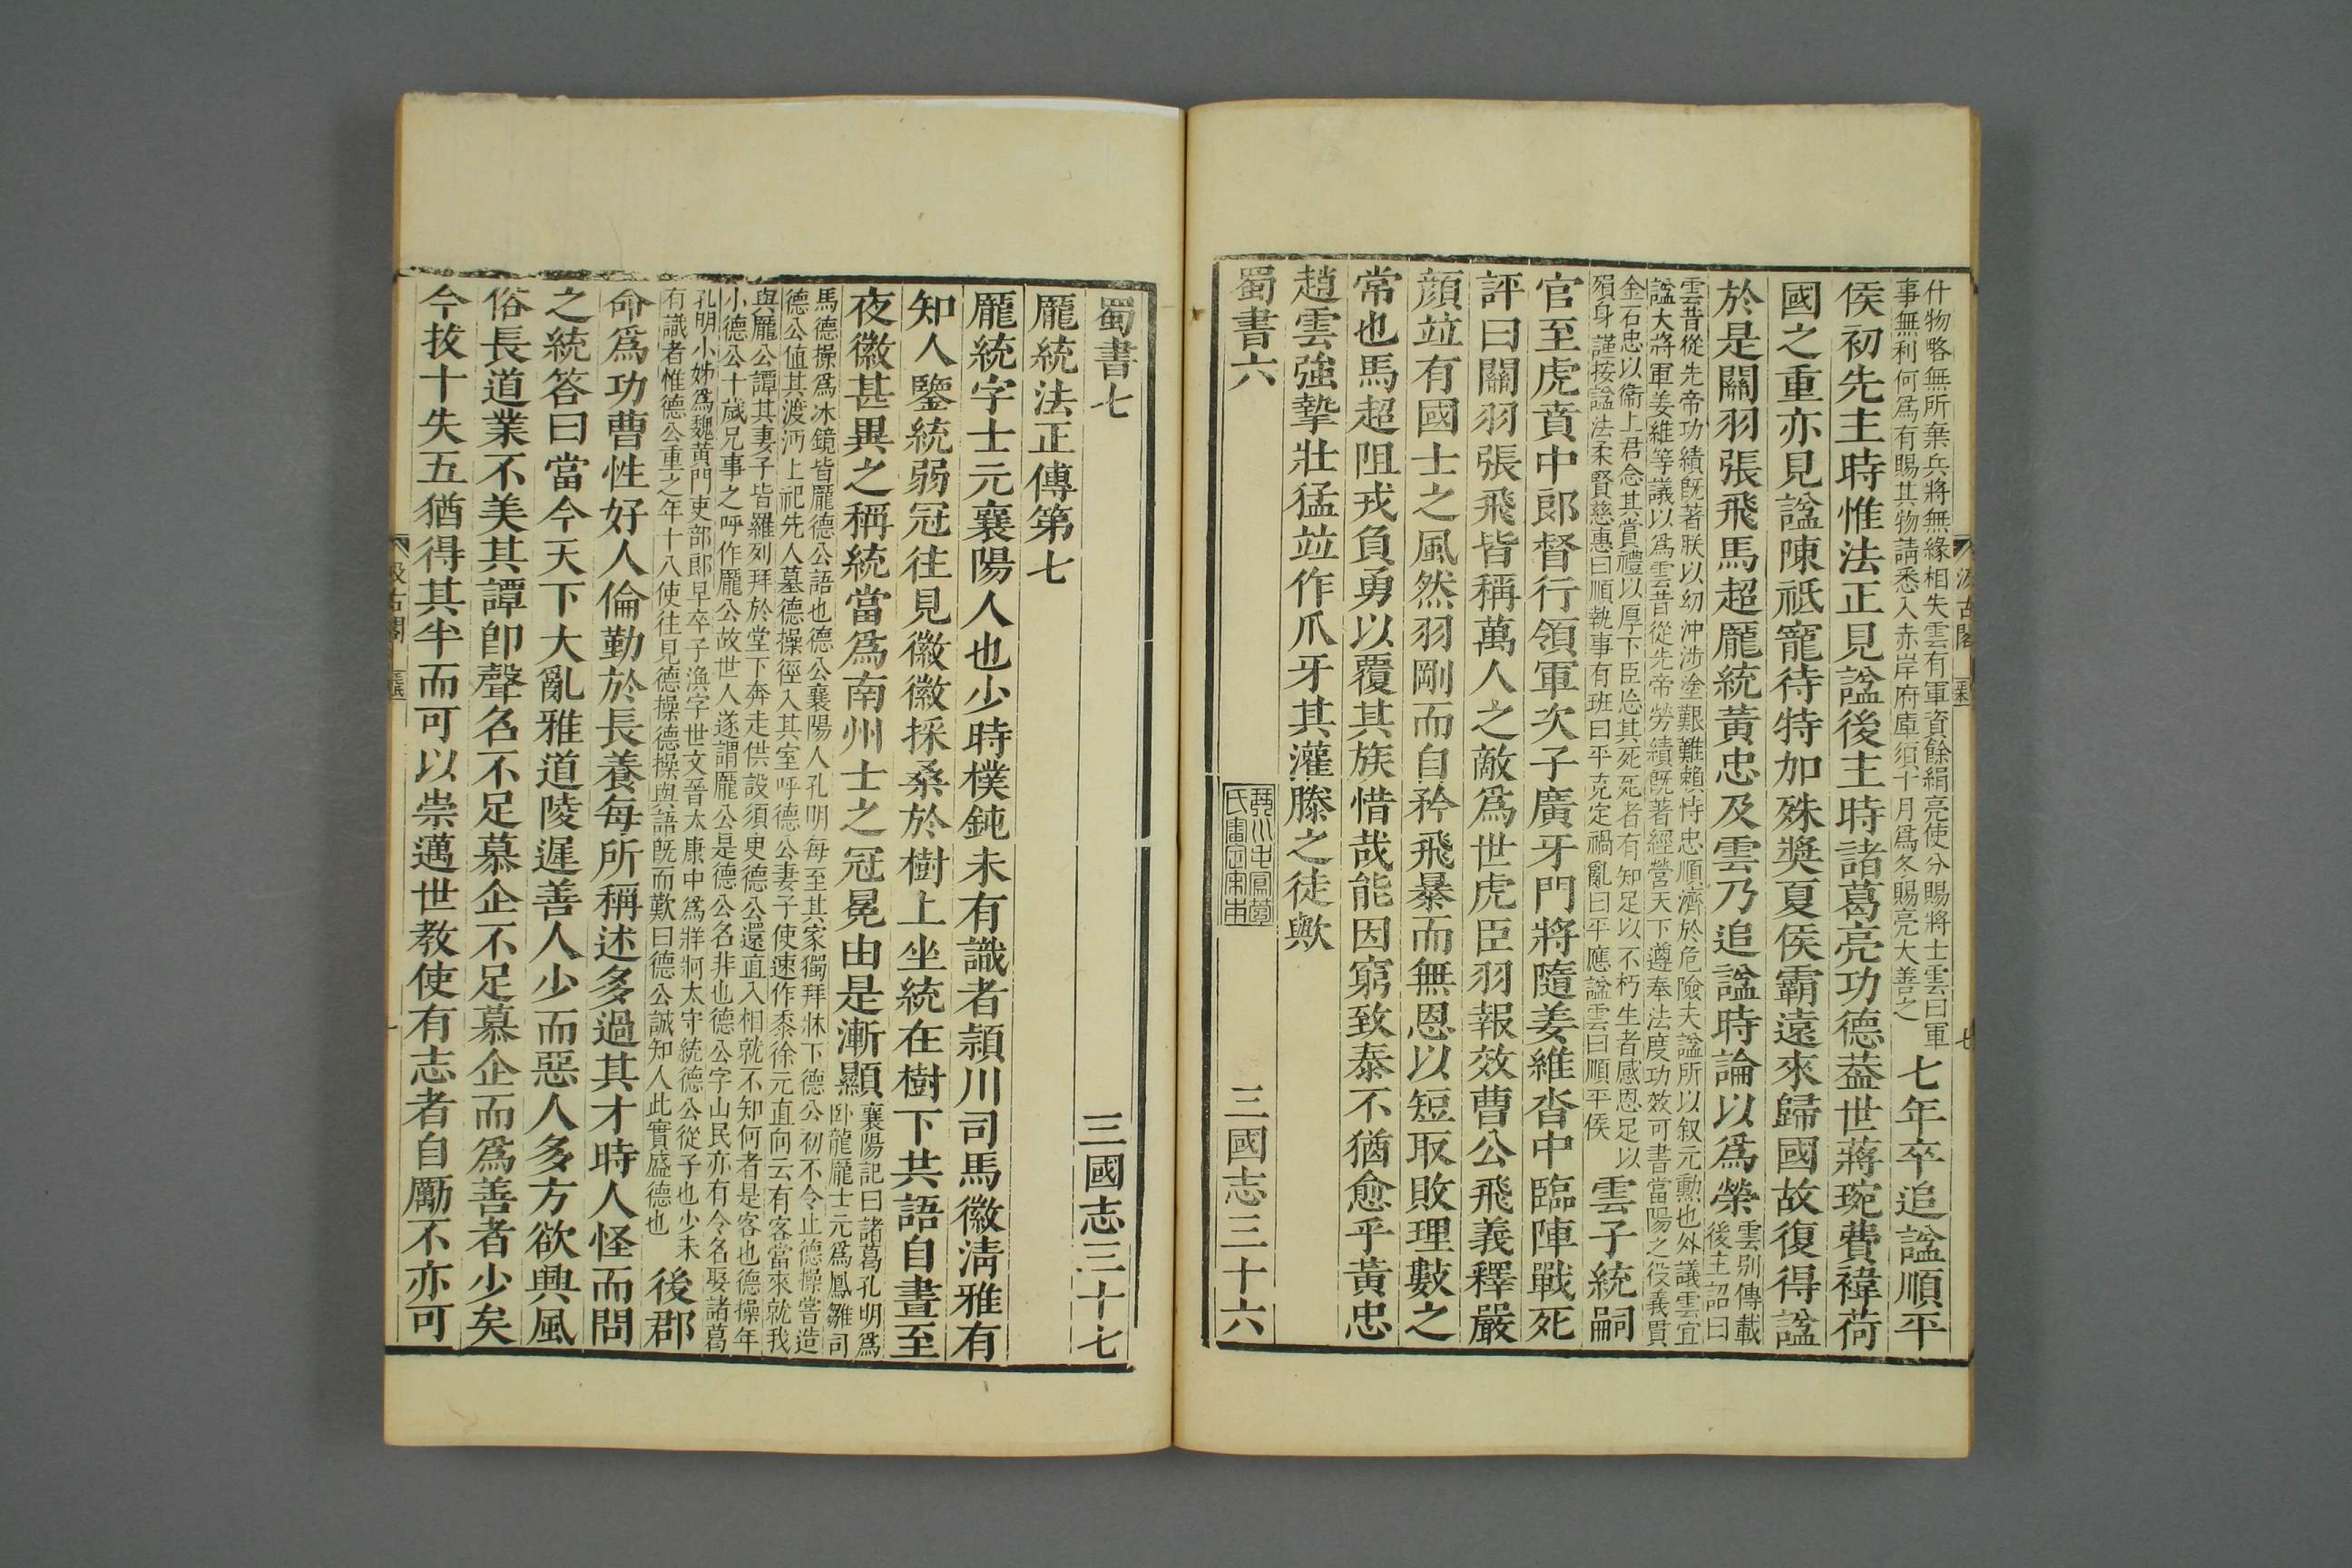 什物略無所棄兵將無緣相失雲有軍資餘絹亮使分賜將士雲曰軍
事無利何爲有賜其物請悉入赤岸府庫須十月爲冬賜亮大善之
七年卒追諡順平
侯初先主時惟法正見諡後主時諸葛亮功德蓋世蔣琬費禕荷
國之重亦見諡陳祗寵待特加殊奬夏侯霸遠來歸國故復得諡
於是關羽張飛馬超龐統黃忠及雲乃追諡時論以爲榮
雲别傳載
後主詔曰
雲昔從先帝功績旣著朕以幼沖涉塗艱難賴恃忠順濟於危險夫諡所以叙元勲也外議雲宜
諡大將軍姜維等議以爲雲昔從先帝勞績旣著經營天下遵奉法度功效可書當陽之役義貫
金石忠以衞上君念其賞禮以厚下臣忘其死死者有知足以不朽生者感恩足以
殞身謹按諡法柔賢慈惠曰順執事有班曰平克定禍亂曰平應諡雲曰順平侯
雲子統嗣
官至虎賁中郎督行領軍次子廣牙門將隨姜維沓中臨陣戰死
評曰關羽張飛皆稱萬人之敵爲世虎臣羽報效曹公飛義釋嚴
顔竝有國士之風然羽剛而自矜飛暴而無恩以短取敗理數之
常也馬超阻戎負勇以覆其族惜哉能因窮致泰不猶愈乎黃忠
趙雲強摯壯猛竝作爪牙其灌滕之徒歟
蜀書六
三國志三十六
汲古閣
七
蜀書七
三國志三十七
龐統法正傳第七
龐統字士元襄陽人也少時樸鈍未有識者潁川司馬徽淸雅有
知人鑒統弱冠往見徽徽採桑於樹上坐統在樹下共語自晝至
夜徽甚異之稱統當爲南州士之冠冕由是漸顯
襄陽記曰諸葛孔明爲
卧龍龐士元爲鳳雛司
馬德操爲冰鏡皆龐德公語也德公襄陽人孔明每至其家獨拜牀下德公初不令止德操嘗造
德公值其渡沔上祀先人墓德操徑入其室呼德公妻子使速作黍徐元直向云有客當來就我
與龐公譚其妻子皆羅列拜於堂下奔走供設須臾德公還直入相就不知何者是客也德操年
小德公十歲兄事之呼作龐公故世人遂謂龐公是德公名非也德公字山民亦有令名娶諸葛
孔明小姊爲魏黃門吏部郎早卒子渙字世文晉太康中爲牂牁太守統德公從子也少未
有識者惟德公重之年十八使往見德操德操與語旣而歎曰德公誠知人此實盛德也
後郡
命爲功曹性好人倫勤於長養每所稱述多過其才時人怪而問
之統答曰當今天下大亂雅道陵遲善人少而惡人多方欲興風
俗長道業不美其譚卽聲名不足慕企不足慕企而爲善者少矣
今拔十失五猶得其半而可以崇邁世教使有志者自勵不亦可
汲古閣
一